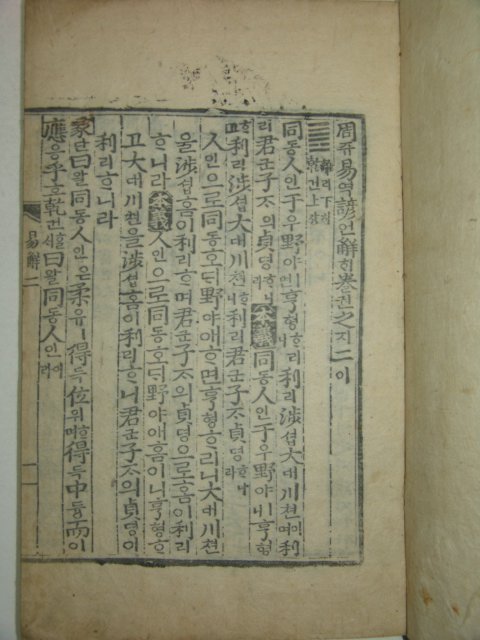 周쥬易역諺언解ᄒᆡ卷권之지二이
離리下하乾건上샹
同동人인于우野야면亨형ᄒᆞ리니利리涉셥大대川쳔이며利
리君군子ᄌᆞ의貞뎡ᄒᆞ니라本義同동人인于우野야니亨형
ᄒᆞ고利리涉셥大대川쳔ᄒᆞ니利리君군子ᄌᆞ貞뎡ᄒᆞ니라
人인으로同동호ᄃᆡ野야애ᄒᆞ면亨형ᄒᆞ리니大대川쳔
을涉셥홈이利리ᄒᆞ며君군子ᄌᆞ의貞뎡으로홈이利리
ᄒᆞ니라本義人인으로同동호ᄃᆡ野야애홈이니亨형ᄒᆞ
고大대川쳔을涉셥홈이利리ᄒᆞ니君군子ᄌᆞ의貞뎡이
利리ᄒᆞ니라
彖단曰왈同동人인은柔유ㅣ得득位위ᄒᆞ며得득中듕而이
應응乎호乾건ᄒᆞᆯᄉᆡ曰왈同동人인이라
易解二 一